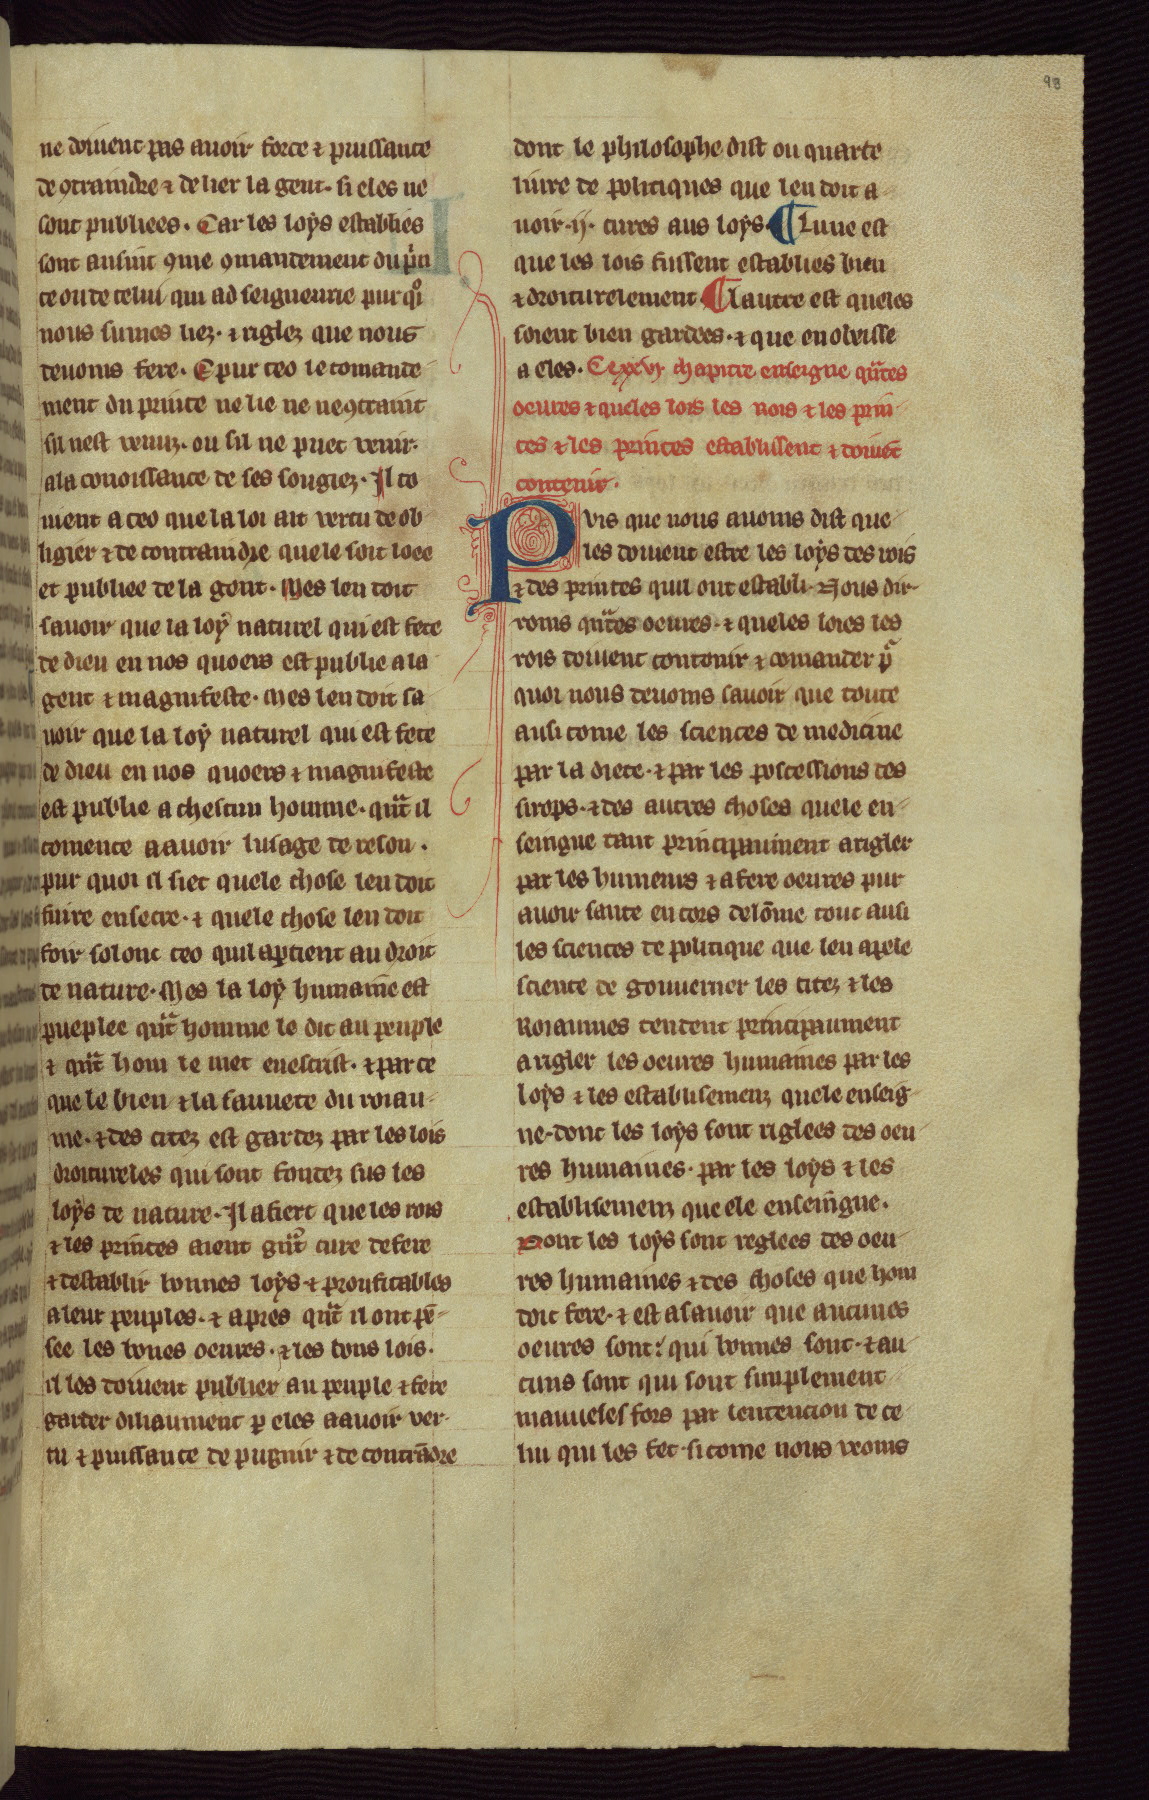 98
ne doiuent pas auoir force ⁊ puissance
de ꝯtraindre ⁊ de lier la gent· si eles ne
sont publiees· Car les loẏs establies
sont ausint ꝯme ꝯmandement du pͥn
ce ou de celui qui ad seigneurie pur qͦi
nous sumes liez· ⁊ riglez que nous
deuoms fere· E pur ceo le comande
ment du prince ne lie ne ne ꝯtraint
sil nest venuz· ou sil ne puet venir·
a la conoissance de ses sougiez· Il co
uient a ceo que la loi ait vertu de ob
ligier ⁊ de contraindre quele soit loee
et publiee de la gent· Mes len doit
sauoir que la loẏ naturel qui est fete
de dieu en nos quoers est publie a la
gent ⁊ magnifeste· Mes len doit sa
uoir que la loẏ naturel qui est fete
de dieu en nos quoers ⁊ magnifeste
est publie a chescun homme· qnͣt il
comence a auoir lusage de reson·
pur quoi il siet quele chose len doit
fuire ensecre· ⁊ quele chose len doit
foir solonc ceo quil apꝑtient au droit
de nature· Mes la loẏ humaine est
pueplee qnͣt homme le dit au peuple
⁊ qnͣt hom le met enescrist· ⁊ par ce
que le bien ⁊ la sauuete du roiau-
me· ⁊ des citez est gardez par les lois
droitureles qui sont fondez sus les
loẏs de nature· Il afiert que les rois
⁊ les princes aient gnͣt cure de fere
⁊ destablir bonnes loẏs ⁊ proufitables
a leur peuples· ⁊ apres qnͣt il ont pē-
see les bones oeures· ⁊ les bons lois·
il les doiuent publier au peuple ⁊ fere
garder diliaument ꝑ eles a auoir ver-
tu ⁊ puissance de pugnir ⁊ de contrādre
dont le philosophe dist ou quarte
liure de politiques que len doit a-
uoir ·ij· cures aus loẏs· ¶ Lune est
que les lois fussent establies bien
⁊ droiturelement ¶ Lautre est queles
soient bien gardees· ⁊ que en obeisse
a eles· Ce xxvj chapitre enseigne qnͣtes
oeures ⁊ queles lois les rois ⁊ les prin-
ces ⁊ les princes establissent ⁊ doiuēt
contenir·
PVis que nous auoms dist que
les doiuent estre les loẏs des rois
⁊ des princes quil ont establi· Nous dir-
roms qnͣtes oeures· ⁊ queles loies les
rois doiuent contenir ⁊ comander pͬ
quoi nous deuoms sauoir que toute
ausi come les sciences de medicine
par la diete· ⁊ par les poscessions des
sirops· ⁊ des autres choses quele en-
seingne tant principaument a rigler
par les humeurs ⁊ a fere oeures pur
auoir sante en cors delōme tout ausi
les sciences de politique que len apele
science de gouuerner les citez ⁊ les
Roiaumes tendent principaument
a rigler les oeures humaines par les
loẏs ⁊ les establisemenz quele enseig-
ne· dont les loẏs sont riglees des oeu
res humaines· par les loẏs ⁊ les
establisemenz que ele enseingne·
Dont les loẏs sont reglees des oeu
res humaines ⁊ des choses que hom
doit fere· ⁊ est a sauoir que aucunes
oeures sont: qui bonnes sont· ⁊ au
cuns sont qui sont simplement
mauueses fors par lentencion de ce-
lui qui les fet· si come nous veoms